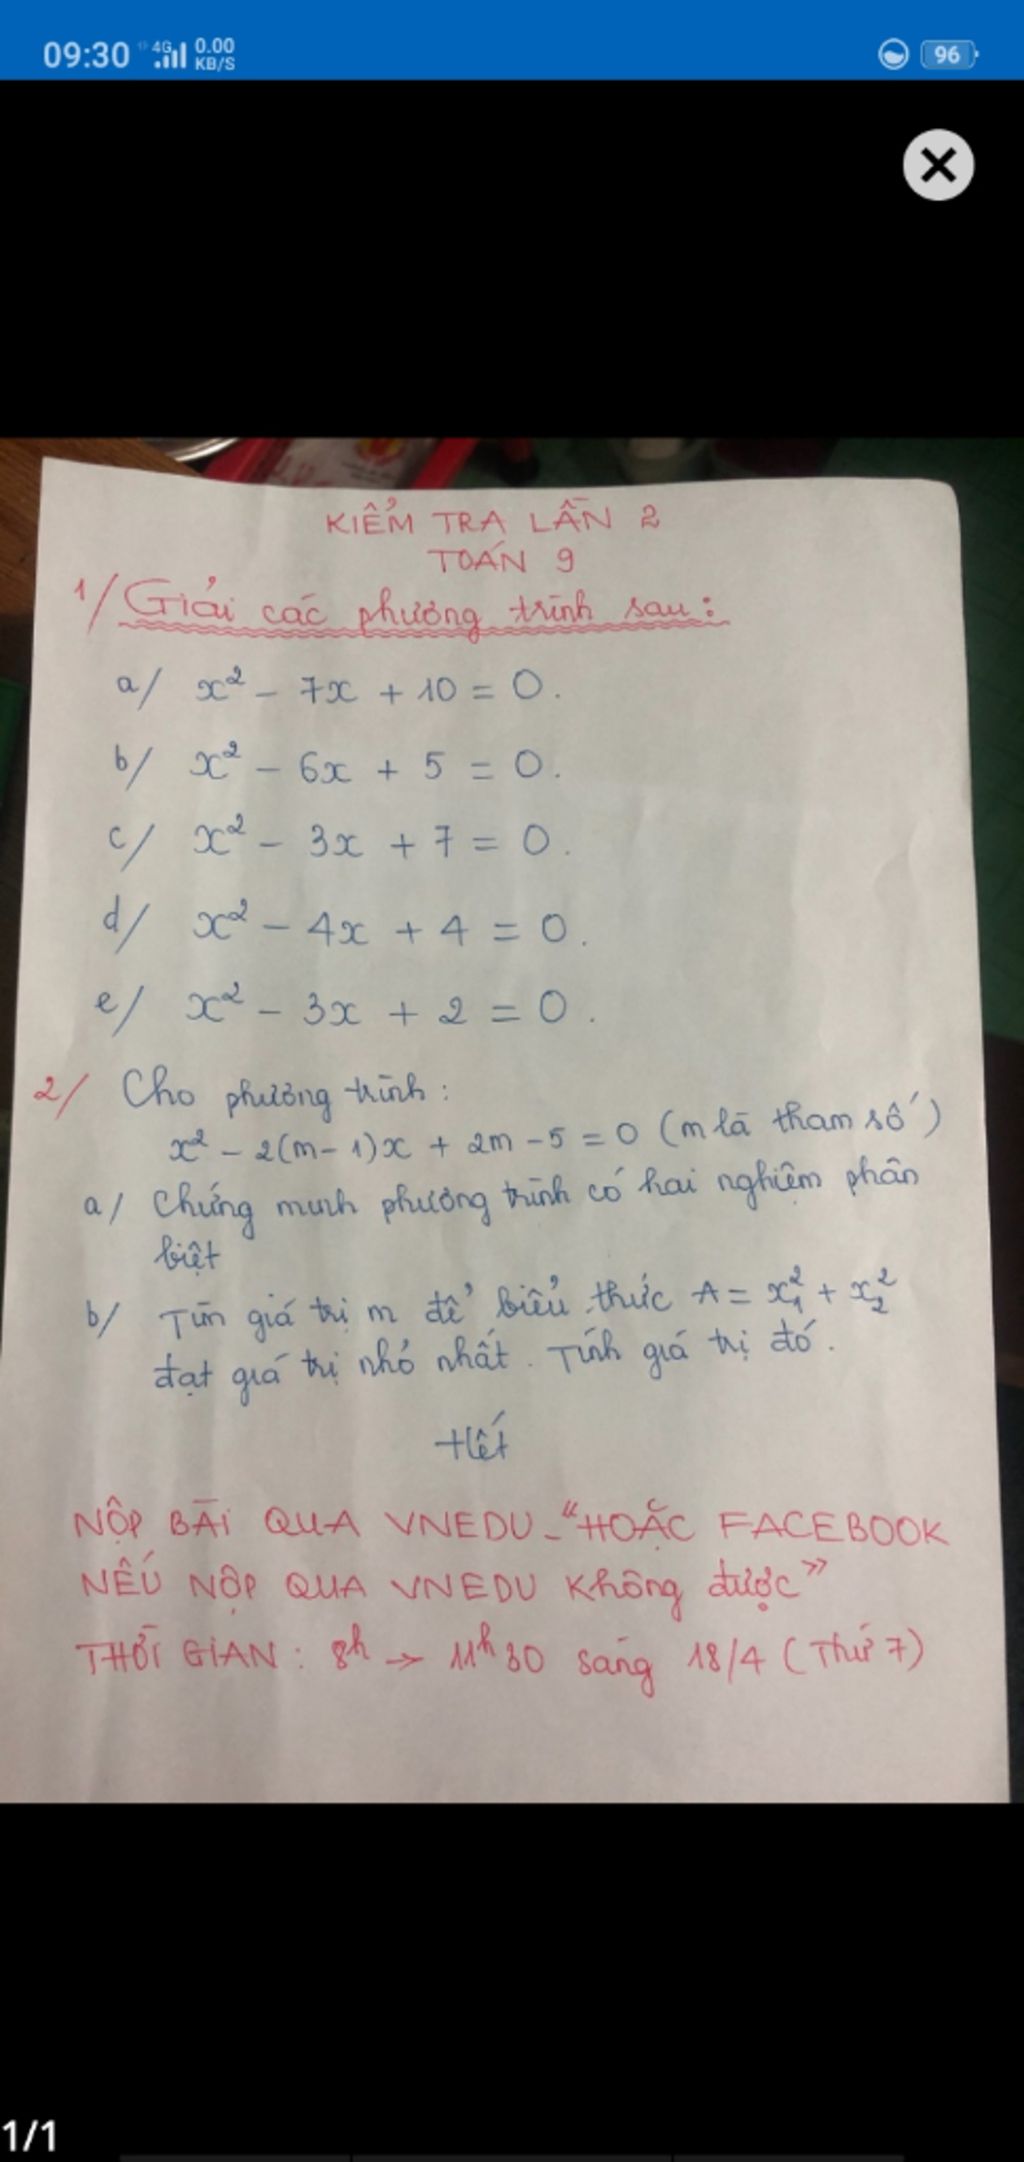 09:30 4G 0.00 KB/S 96
KIỂM TRA LẦN 2
TOÁN 9
1/ Giải các phương trình sau:
a/ x² - 7x + 10 = 0.
b/ x² - 6x + 5 = 0.
c/ x² - 3x + 7 = 0.
d/ x² - 4x + 4 = 0.
e/ x² - 3x + 2 = 0.
2/ Cho phương trình:
x² - 2(m-1)x + 2m - 5 = 0 (m là tham số)
a/ Chứng minh phương trình có hai nghiệm phân
biệt
b/ Tìm giá trị m để biểu thức A = x₁² + x₂²
đạt giá trị nhỏ nhất. Tính giá trị đó.
Hết
NỘP BÀI QUA VNEDU - "HOẶC FACEBOOK
NẾU NỘP QUA VNEDU Không được"
THỜI GIAN: 8h → 11h30 sáng 18/4 (Thứ 7)
1/1